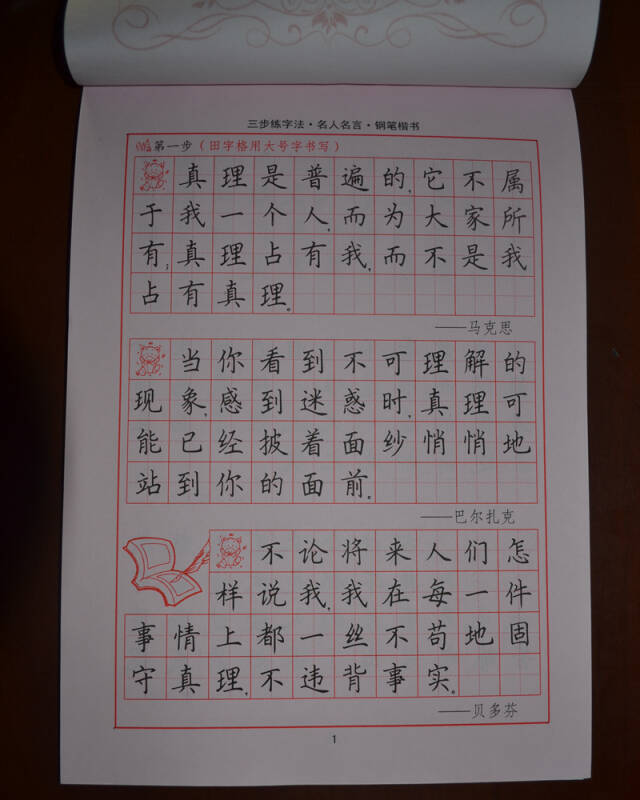 三步练字法·名人名言·钢笔楷书
第一步（田字格用大号字书写）
真理是普遍的,它不属
于我一个人,而为大家所
有;真理占有我,而不是我
占有真理。
——马克思
当你看到不可理解的
现象,感到迷惑时,真理可
能已经披着面纱悄悄地
站到你的面前。
——巴尔扎克
不论将来人们怎
样说我,我在每一件
事情上都一丝不苟地固
守真理,不违背事实。
——贝多芬
1